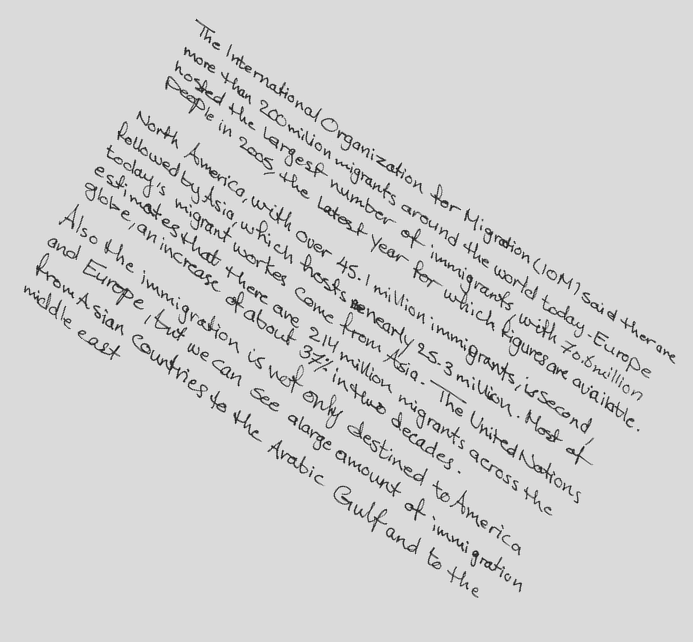 The International Organization for Migration (IOM) said ther are
more than 200 million migrants around the world today. Europe
hosted the largest number of immigrants, with 70.6 million
people in 2005, the latest year for which figures are available.
North America, with over 45.1 million immigrants, is second,
followed by Asia, which hosts nearly 25.3 million. Most of
today's migrant workes come from Asia. The United Nations
estimates that there are 214 million migrants across the
globe, an increase of about 37% in two decades.
Also the immigration is not only destined to America
and Europe, but we can see alarge amount of immigration
from Asian countries to the Arabic Gulf and to the
middle east